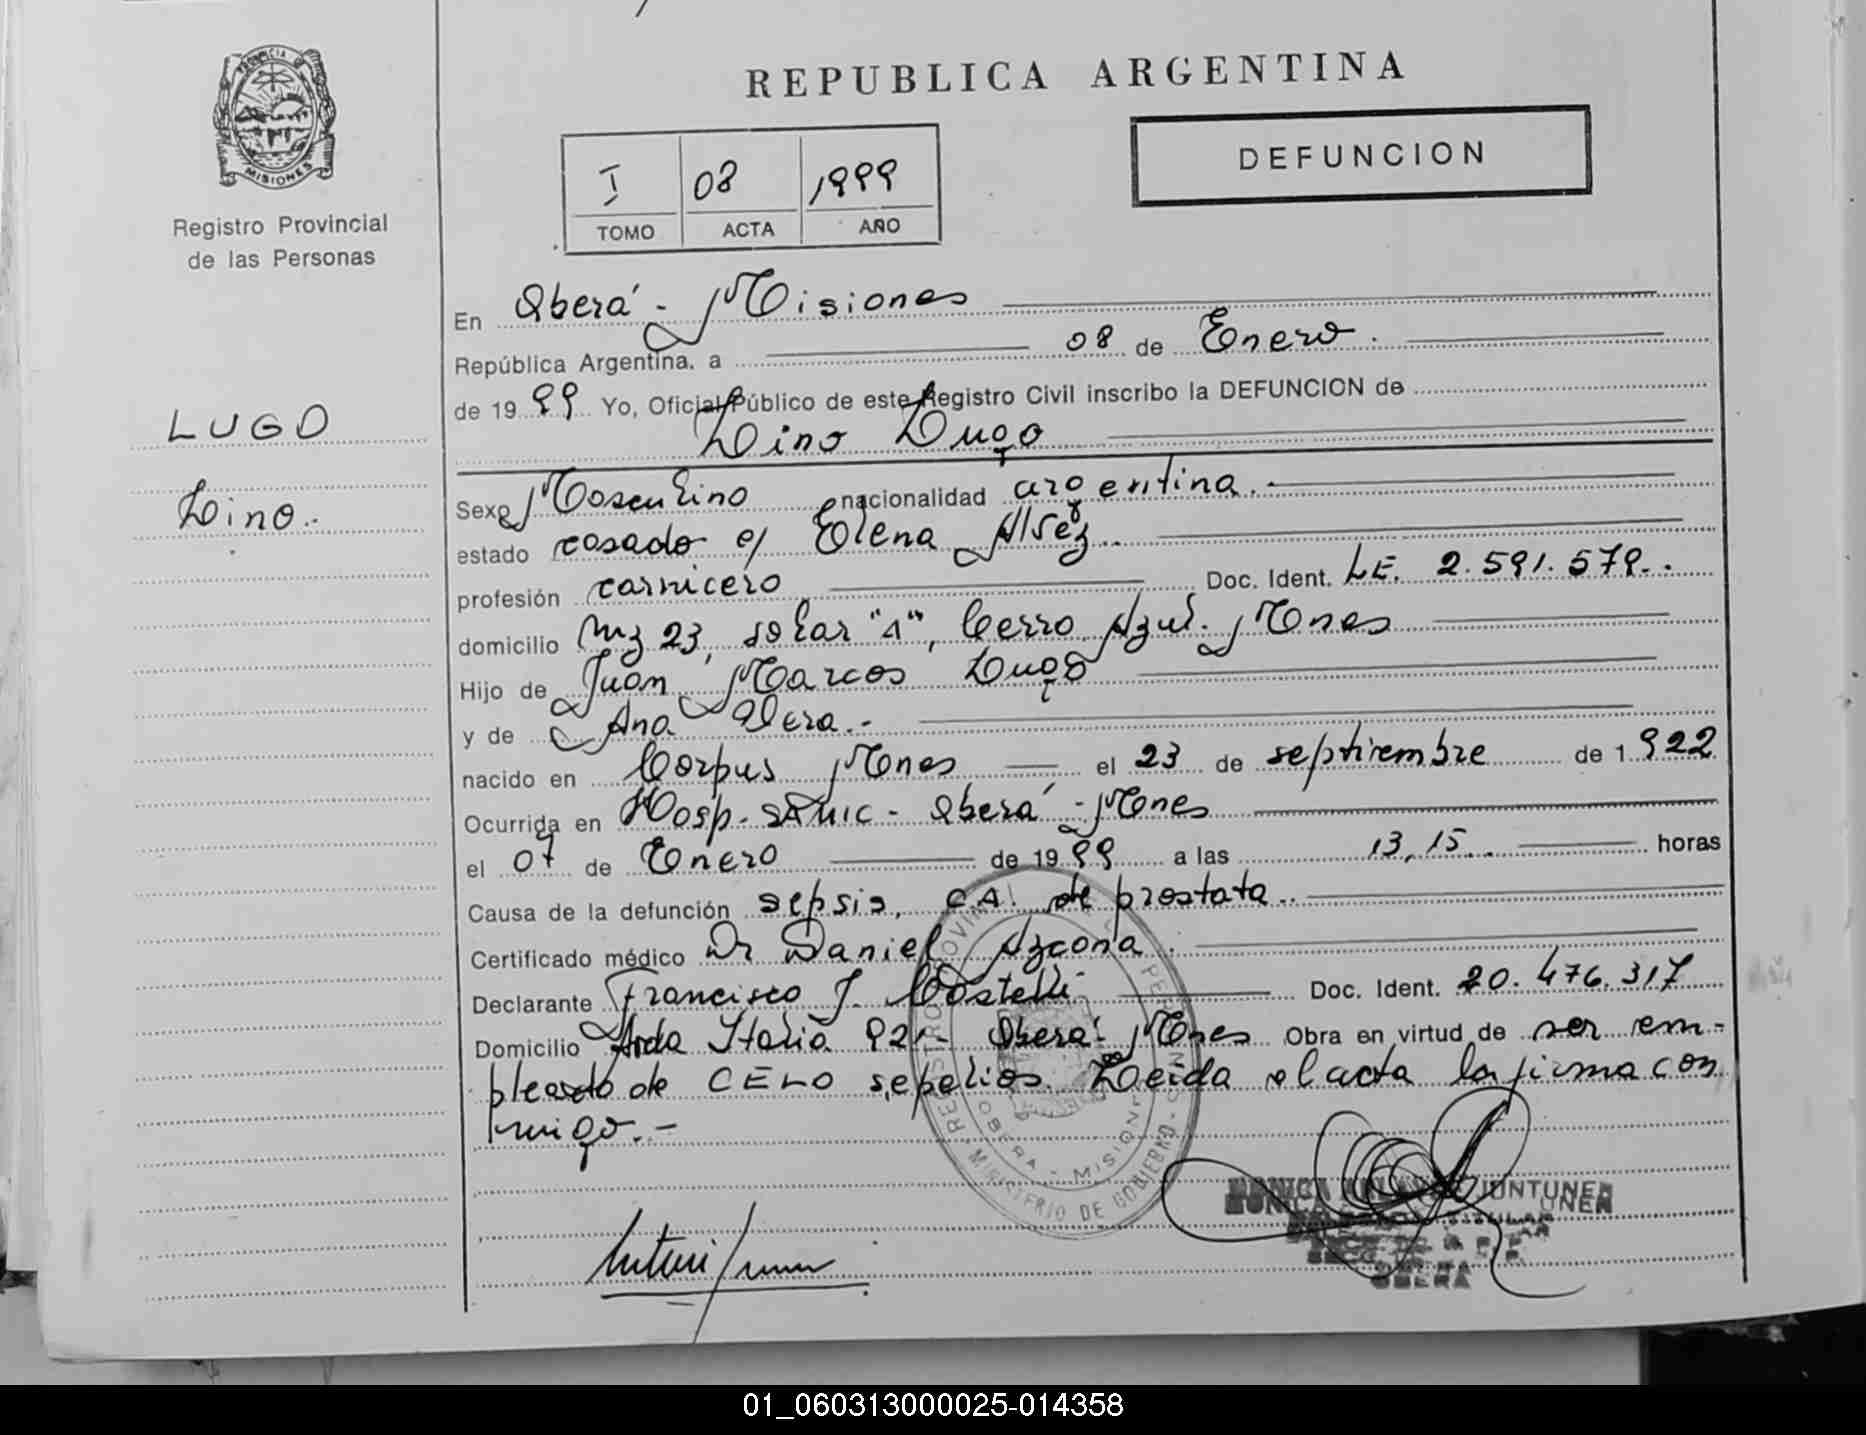 PROVINCIA D
MISIONES
Registro Provincial
de las Personas
LUGO
Lino.-
REPUBLICA ARGENTINA
I 08 1999
TOMO ACTA AÑO
DEFUNCION
En Oberá - Misiones
República Argentina. a 08 de Enero.
de 1999 Yo, Oficial Público de este Registro Civil inscribo la DEFUNCION de
Lino Lugo
Sexo Masculino nacionalidad argentina.-
estado casado c/ Elena Alvez..
profesión carnicero Doc. Ident. L.E. 2.591.579..
domicilio Mz 23, solar "A", Cerro Azul. Mnes
Hijo de Juan Marcos Lugo
y de Ana Vera.-
nacido en Corpus Mnes el 23 de septiembre de 1.922
Ocurrida en Hosp. SAMIC - Oberá - Mnes
el 07 de Enero de 1999 a las 13,15.. horas
Causa de la defunción sepsis, CA. de prostata..
Certificado médico Dr Daniel Azcona.
Declarante Francisco J. Costelli Doc. Ident. 20.476.317
Domicilio Avda Italia 92 Oberá Mnes Obra en virtud de ser em-
pleado de CELO sepelios. Leida el acta la firma con
migo.-
REGISTRO PROVINCIAL DE PERSONAS
MINISTERIO DE GOBIERNO
OBERA - MISIONES
MONICA JUNTUNEN
TITULAR
OBERA
01_060313000025-014358